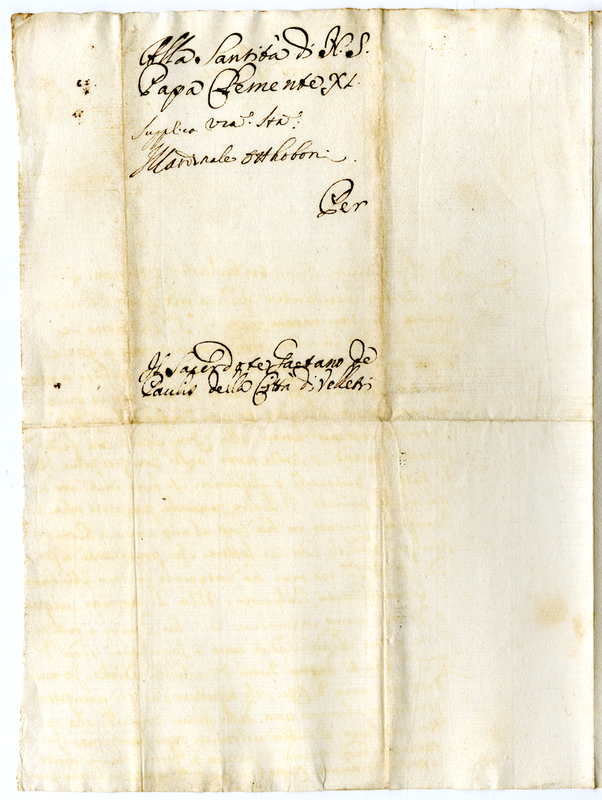 Alla Santità di N. S.
Papa Clemente XI.
Supplica Vra. Stà.
Il Cardinale Otthoboni.
Per
Il Sacerdote Gaetano de
Paulis della Città di Velletri